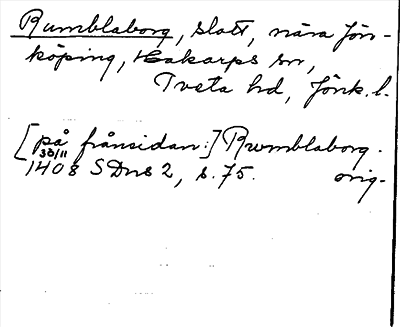 Rumblaborg, slott, nära Jön-
köping, Hakarps sn,
Tveta hd, Jönk. l.
[på frånsidan:] Rwmblaborg.
33/11
1408 SDns 2, s. 75. orig.